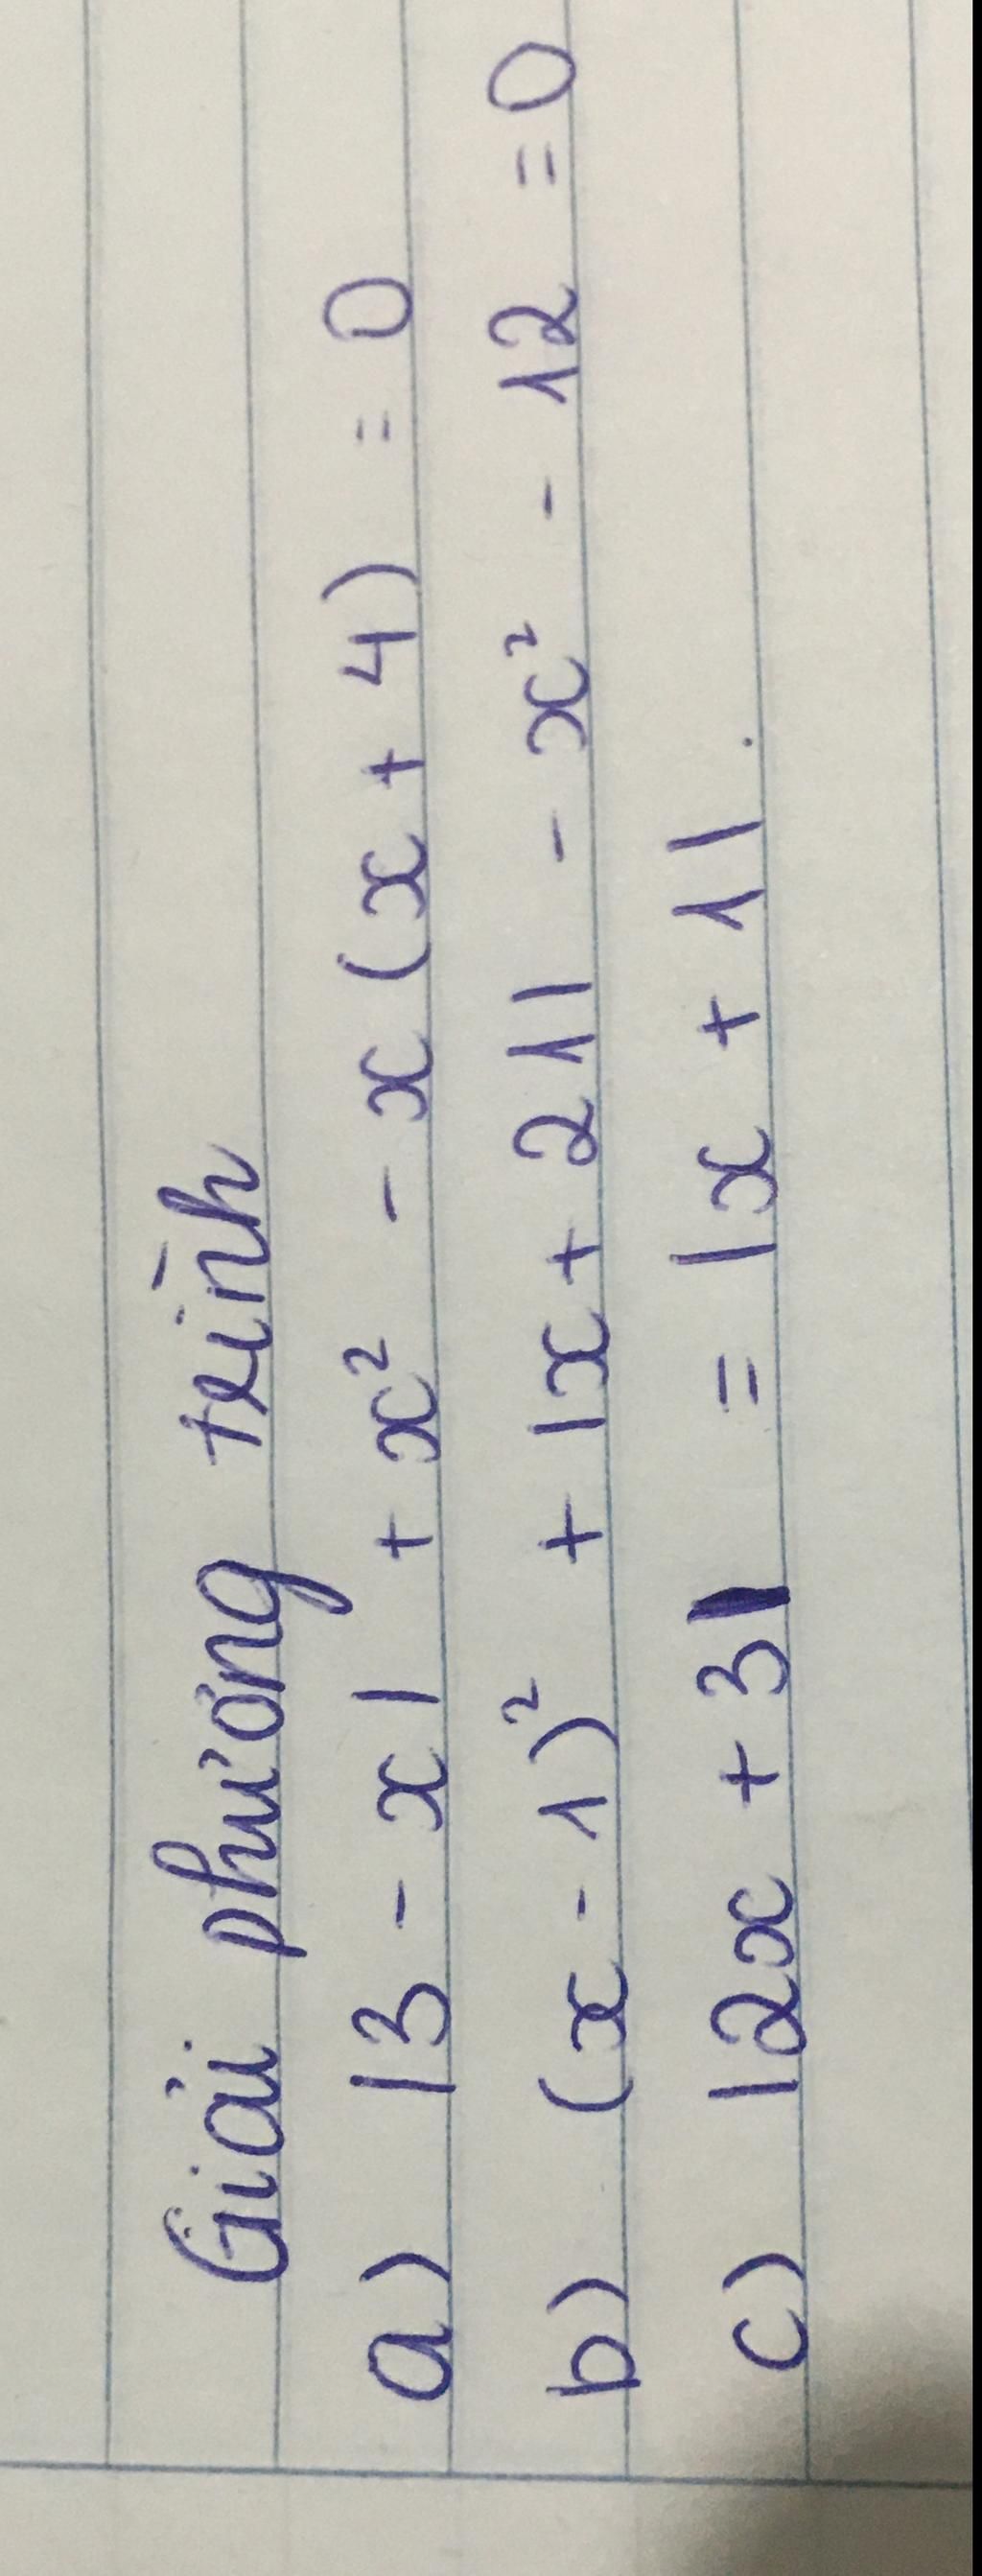 Giải phương trình
a) |3 - x| + x² - x(x + 4) = 0
b) (x - 1)² + |x + 21| - x² - 12 = 0
c) |2x + 3| = |x + 1|.